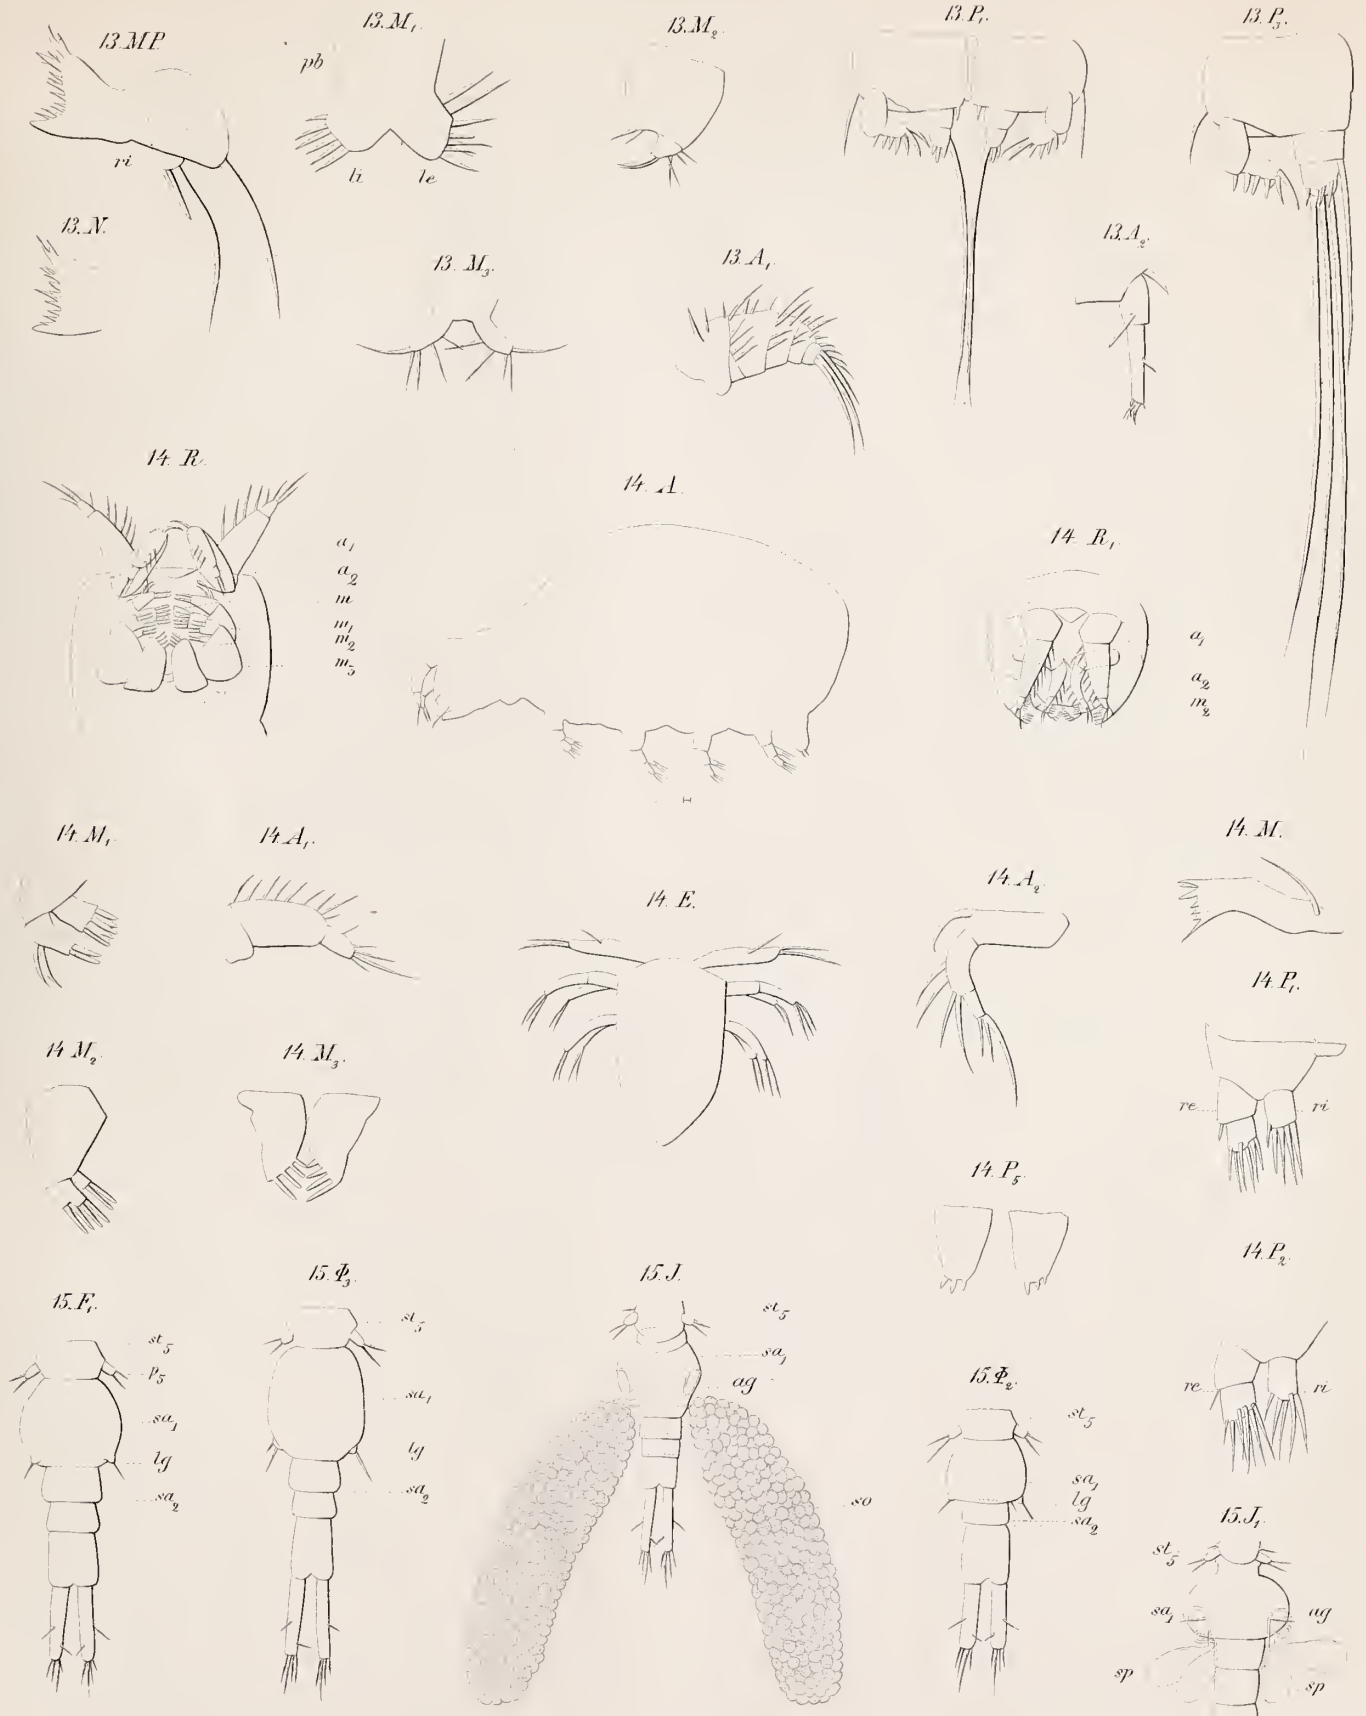 13. MP.
13. M₁.
13. M₂.
13. P₁.
13. P₃.
pb
ri
li
le
13. N.
13. M₃.
13. A₁.
13. A₂.
14. R.
14. A.
14. R₁.
a₁
a₂
m
m₁
m₂
m₃
a₁
a₂
m₂
14. M₁.
14. A₁.
14. E.
14. A₂.
14. M.
14. P₁.
re
ri
14. M₂.
14. M₃.
14. P₅.
14. P₂.
re
ri
15. F₁.
st₅
p₅
sa₁
lg
sa₂
15. Φ₃.
st₅
sa₁
lg
sa₂
15. J.
st₅
sa₁
ag
so
15. Φ₂.
st₅
sa₁
lg
sa₂
15. J₁.
st₅
sa₁
ag
sp
sp